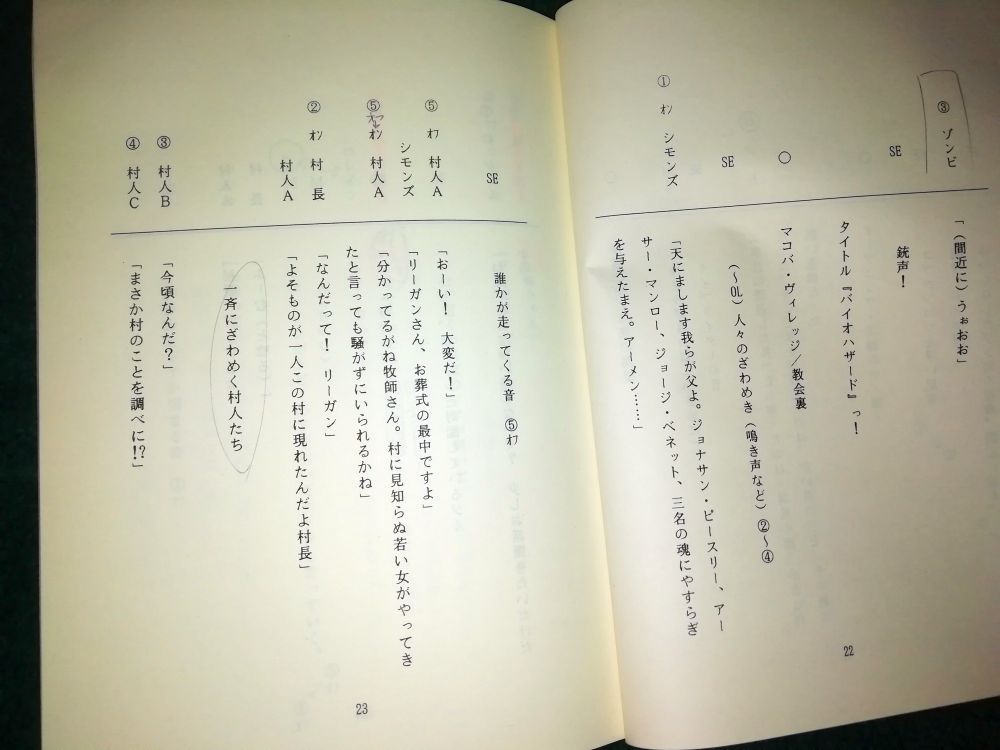 ③ ゾンビ 「(間近に)うぉおお」
SE 銃声！
タイトル『バイオハザード』っ！
○ マコバ・ヴィレッジ／教会裏
SE (～OL)人々のざわめき(鳴き声など)②～④
① オン シモンズ 「天にまします我らが父よ。ジョナサン・ピースリー、アー
サー・マンロー、ジョージ・ベネット、三名の魂にやすらぎ
を与えたまえ。アーメン……」
22
SE 誰かが走ってくる音 ⑤オフ
⑤ オフ 村人A 「おーい！ 大変だ！」
シモンズ 「リーガンさん、お葬式の最中ですよ」
⑤ オン 村人A 「分かってるがね牧師さん。村に見知らぬ若い女がやってき
たと言っても騒がずにいられるかね」
② オン 村長 「なんだって！ リーガン」
村人A 「よそものが一人この村に現れたんだよ村長」
一斉にざわめく村人たち
③ 村人B 「今頃なんだ？」
④ 村人C 「まさか村のことを調べに!?」
23